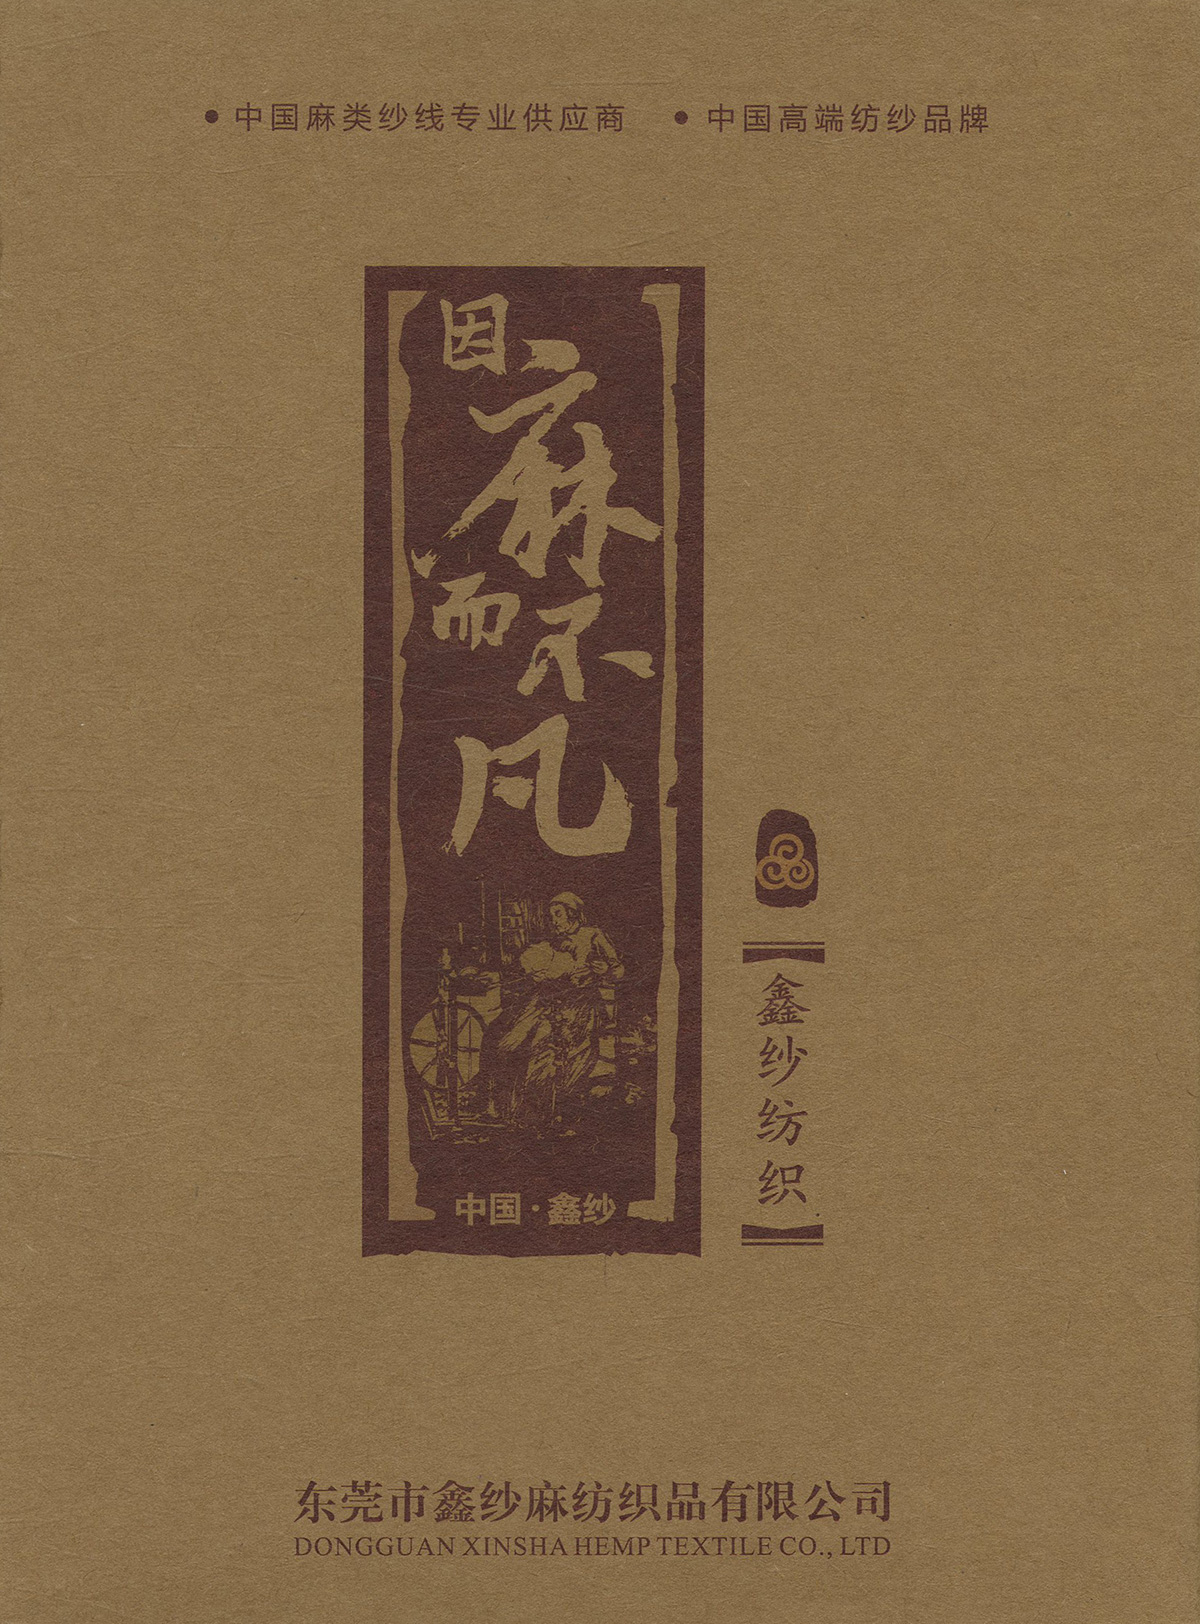 • 中国麻类纱线专业供应商 • 中国高端纺纱品牌
因麻而不凡
中国·鑫纱
鑫纱纺织
东莞市鑫纱麻纺织品有限公司
DONGGUAN XINSHA HEMP TEXTILE CO., LTD